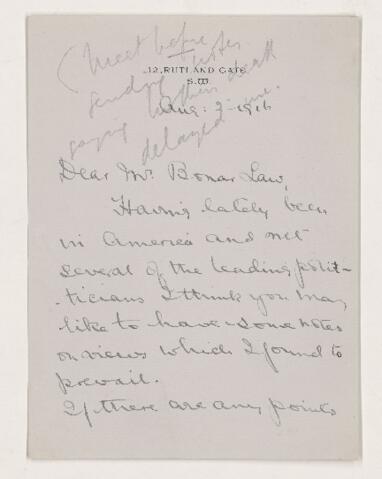 (Meet before
sending notes
saying brothers death
delayed me.
12, RUTLAND GATE
S.W.
Aug: 2-1916
Dear Mr. Bonar Law,
Having lately been
in America and met
several of the leading polit-
-ticians I think you may
like to have some notes
on views which I found to
prevail.
If there are any points